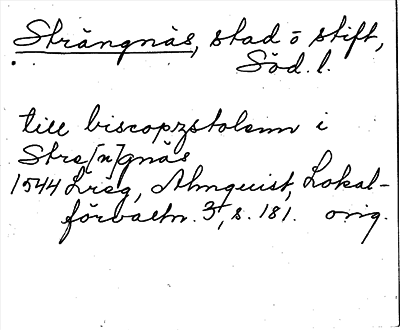 Strängnäs, stad o stift,
Söd. l.
till biscopzstolenn i
Stre[n]gnäs
1544 Lreg, Almquist, Lokal-
förvaltn. 3, s. 181. orig.